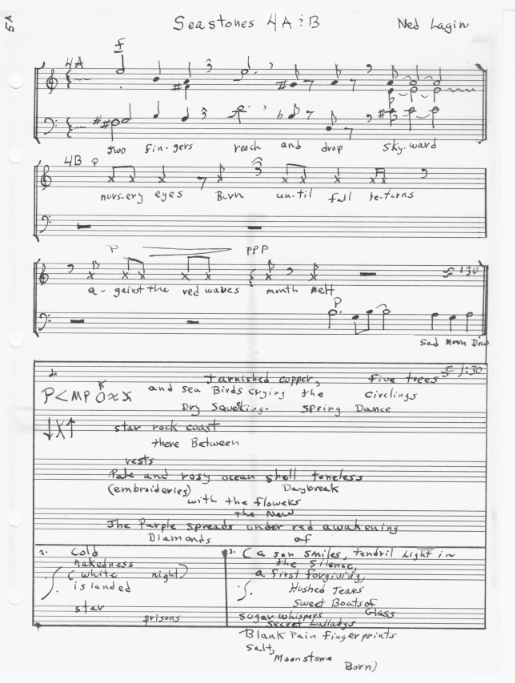 5A
Seastones 4A & B Ned Lagin
4A f
Two fin-gers reach and drop sky-ward
4B P
nurs-ery eyes Burn un-til fall re-turns
P PPP
a-gainst the red waves month melt
P
Sad Moon
tarnished copper, five trees 1:30
P<MP and Sea Birds crying the circlings
Dry Spring Dance
star rock coast
there Between
rests
Pale and rosy ocean shell toneless
(embroideries) Daybreak
with the flowers
the New
The Purple spreads under red awakening
Diamonds of
2. Cold
nakedness
(white night)
islanded
star
prisons
3. (a son smiles, tendril light in
the silence,
a first forgiving,
Hushed Tears
Sweet Boats of
Glass
sugar whispers
secret Lullabys
Blank Pain fingerprints
salt,
Moonstone
Born)